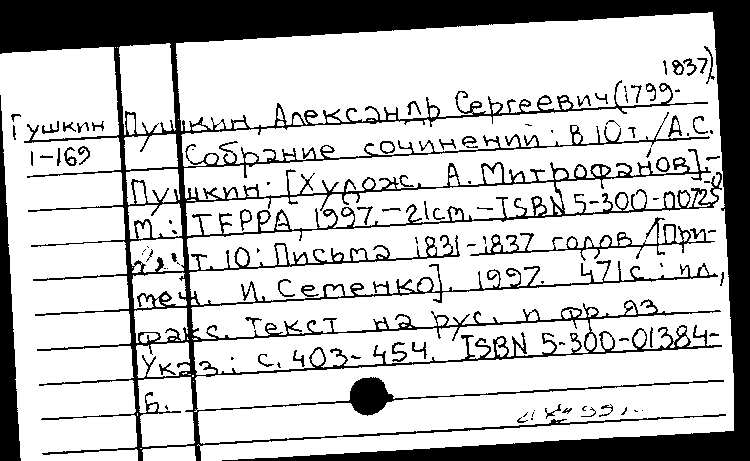 1837).
Пушкин, Александр Сергеевич (1799-
Пушкин
1-169
Собрание сочинений: В 10 т. / А.С.
Пушкин; [Худож. А. Митрофанов].-
М.: ТЕРРА, 1997.-21cm.-ISBN 5-300-00725-0
Т. 10: Письма 1831-1837 годов / [При-
меч. И. Семенко]. 1997. 471с.: ил.,
факс. Текст на рус. и фр. яз.
Указ.: с. 403-454. ISBN 5-300-01384-
6.